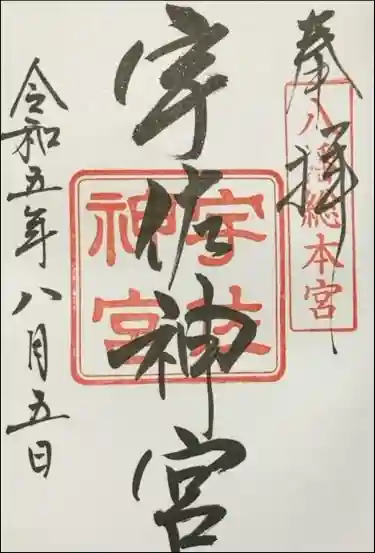 奉拝
八幡総本宮
宇佐神宮
宇佐神宮
令和五年八月五日